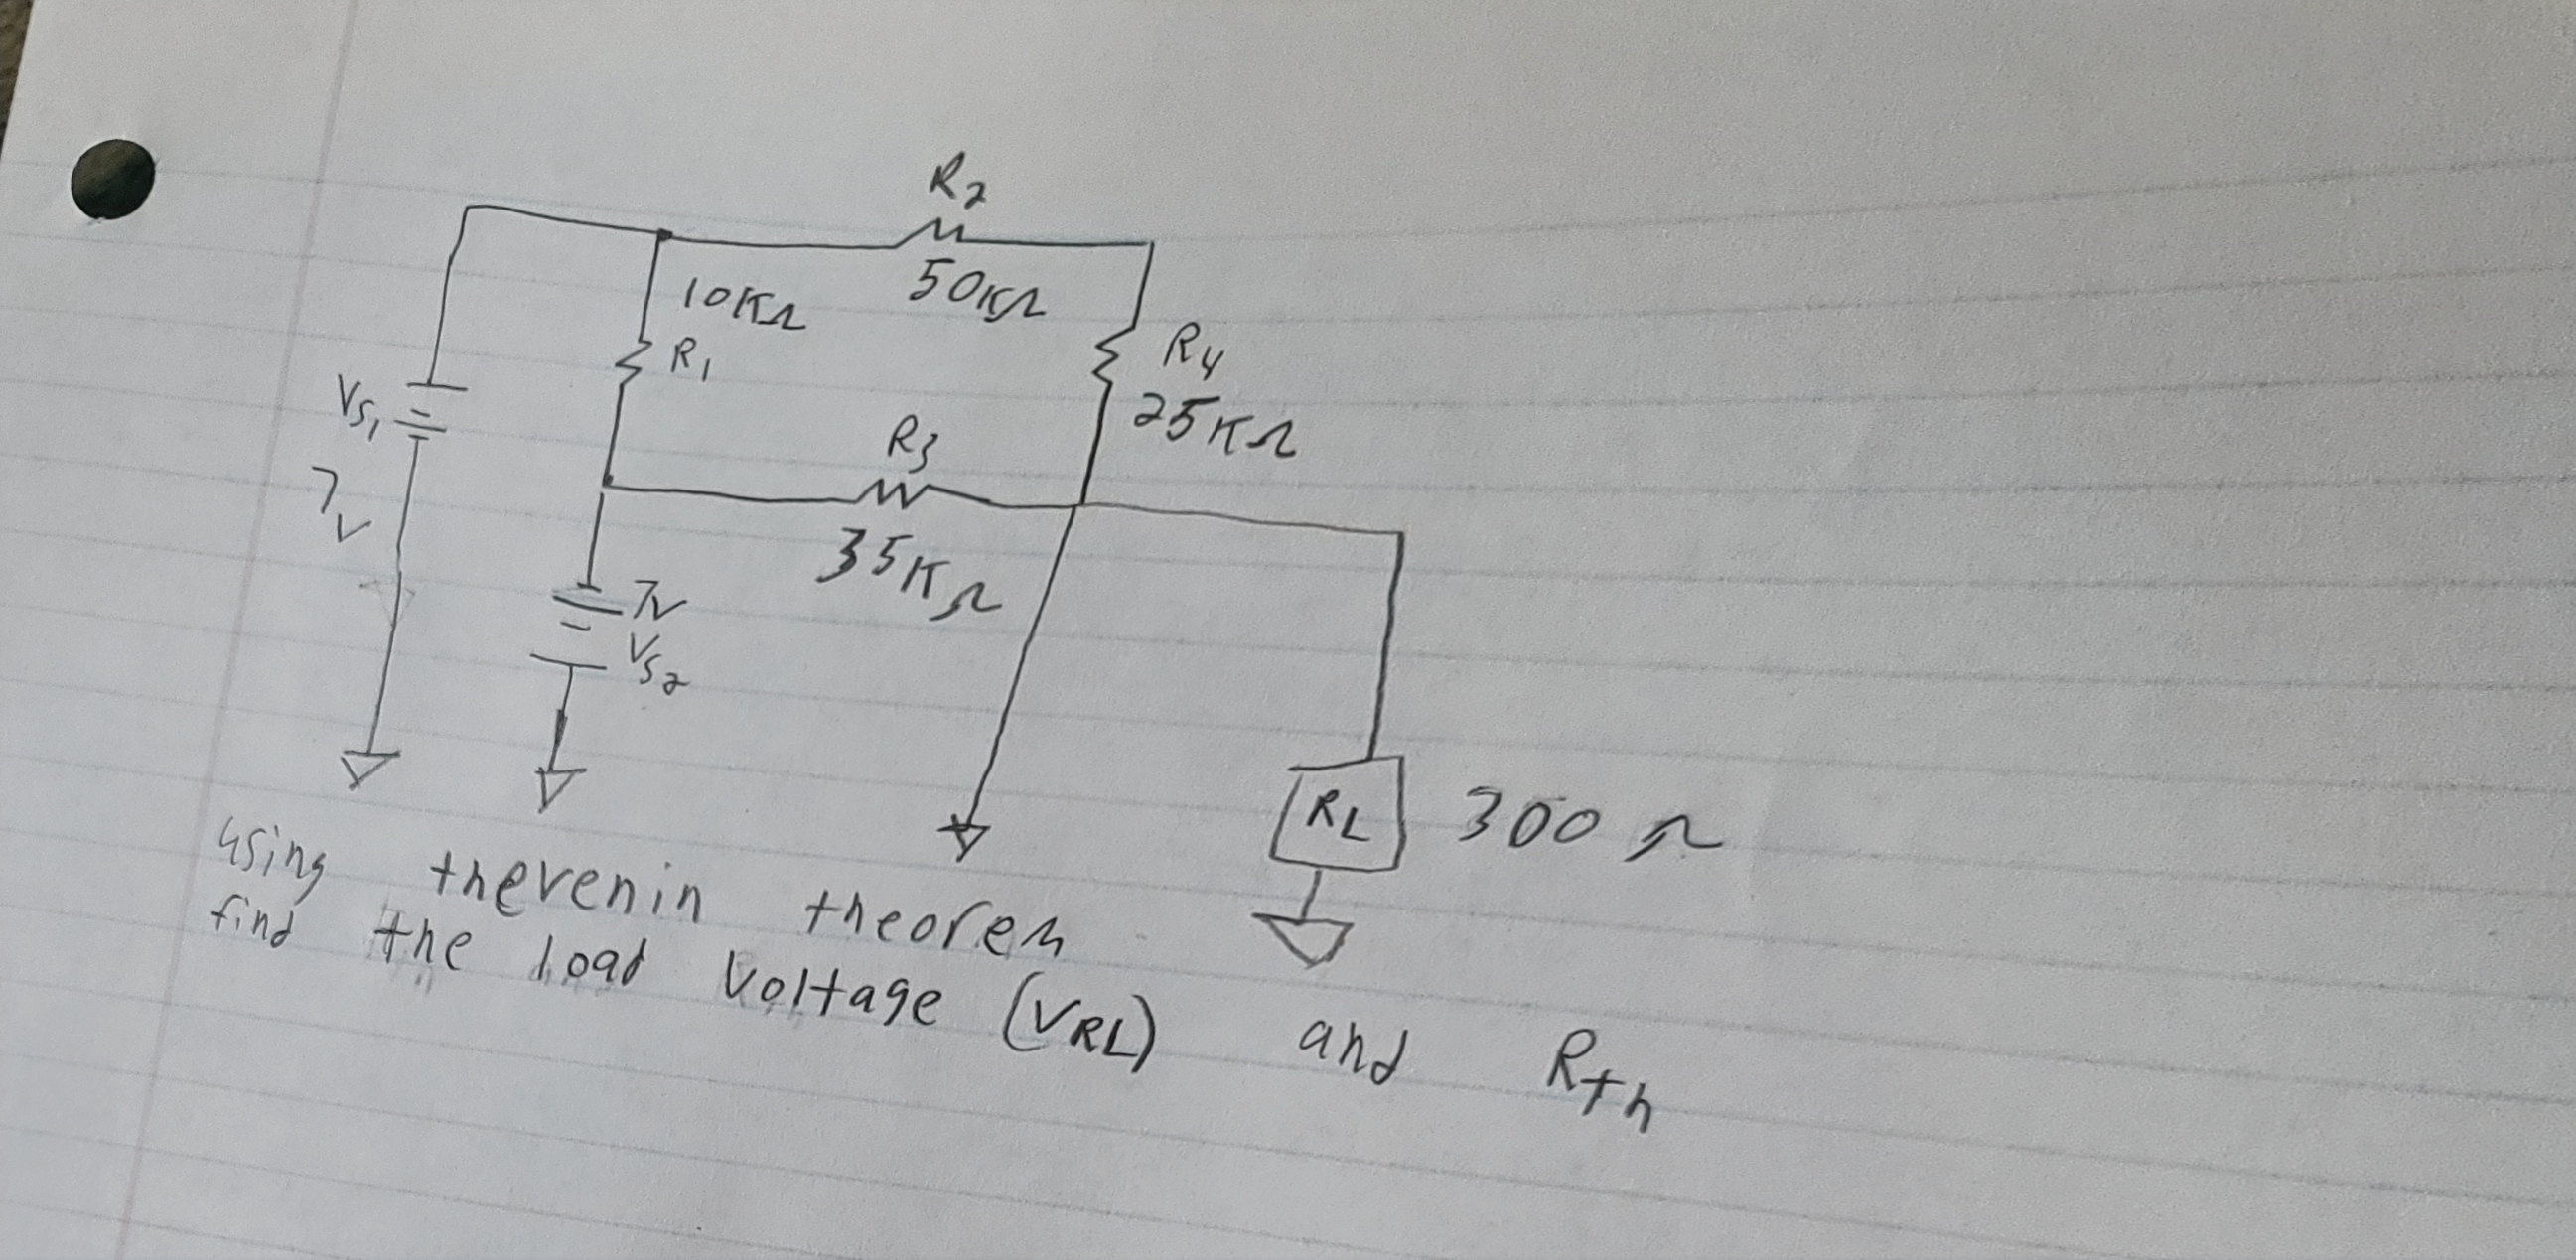 R2
50KΩ
10KΩ
R1
R4
25KΩ
VS1
7V
R3
35KΩ
7V
VS2
RL
300 Ω
using thevenin theorem
find the load voltage (VRL) and Rth